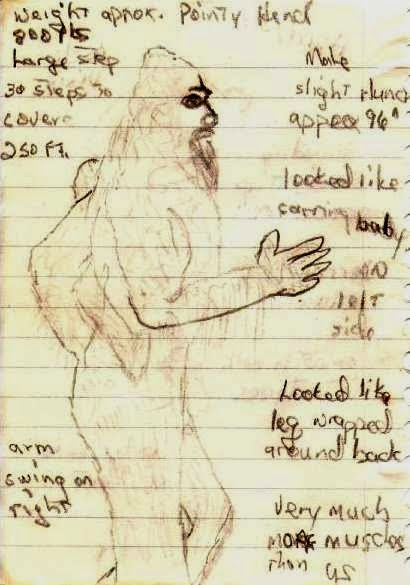 weight appox. Pointy Head
Large step
30 steps to
cover
250 Ft.
Male
slight
appox 96"
looked like
carring baby
on
left
side
Looked like
leg wrapped
around back
arm
swing on
right
Very much
more muscles
than us